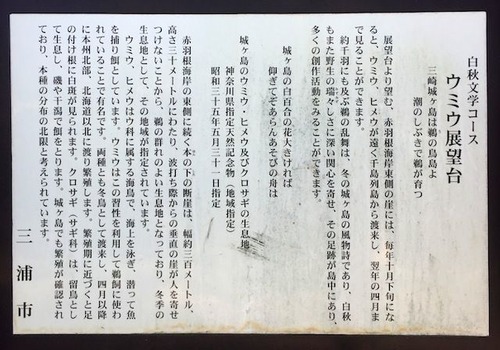 白秋文学コース
ウミウ展望台
三崎城ケ島は鵜の鳥島よ
潮のしぶきで鵜が育つ
展望台より望む、赤羽根海岸東側の崖には、毎年十月下旬にな
ると、ウミウ、ヒメウが遠く千島列島から渡来し、翌年の四月ま
で見ることができます。
約千羽にも及ぶ鵜の乱舞は、冬の城ヶ島の風物詩であり、白秋
もまた野生の瑞々しさに深い関心を寄せ、その足跡が島中にあり、
多くの創作活動をみることができます。
城ヶ島の白百合の花大きければ
仰ぎてぞあらんあそびの舟は
城ヶ島のウミウ・ヒメウ及びクロサギの生息地
神奈川県指定天然記念物(地域指定)
昭和三十五年五月三十一日指定
赤羽根海岸の東側に続く本の下の断崖は、幅約三百メートル、
高さ三十メートルにわたり、波打ち際からの垂直の崖が人を寄せ
つけないことから、鵜の群れのよい生息地となっており、冬季の
生息地として、その地域が指定されています。
ウミウ、ヒメウはウ科に属する海鳥で、海上を泳ぎ、潜って魚
を捕り餌としています。ウミウはこの習性を利用して鵜飼に使わ
れていることで有名です。両種とも冬鳥として渡来し、四月以降
に本州北部、北海道以北に渡り繁殖します。繁殖期に近づくと足
の付け根に白斑が見られます。クロサギ(サギ科)は、留鳥とし
て生息し、磯や干潟で餌をとります。城ヶ島でも繁殖が確認され
ており、本種の分布の北限と考えられています。
三浦市